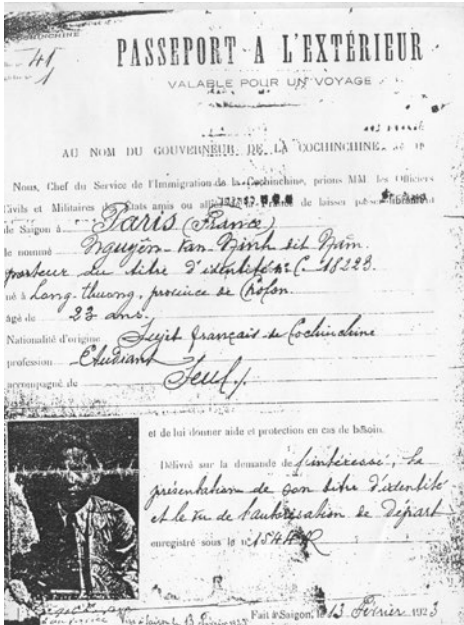 COCHINCHINE
41
1
PASSEPORT A L'EXTÉRIEUR
VALABLE POUR UN VOYAGE
AU NOM DU GOUVERNEUR DE LA COCHINCHINE
Nous, Chef du Service de l'Immigration de la Cochinchine, prions MM. les Officiers
Civils et Militaires des États amis ou de laisser passer librement
de Saigon à Paris (France)
le nommé Nguyên-Van-Ninh dit Nam.
porteur du titre d'identité n° C. 18223
né à Long-thuong, province de Cholon
âgé de 23 ans.
Nationalité d'origine Sujet français de Cochinchine
profession Etudiant
accompagné de Seul
et de lui donner aide et protection en cas de besoin.
Délivré sur la demande de l'intéressé, la
présentation de son titre d'identité
et le vu de l'autorisation de départ
enregistré sous le n° 1544 R
Fait à Saigon, le 13 Février 1923